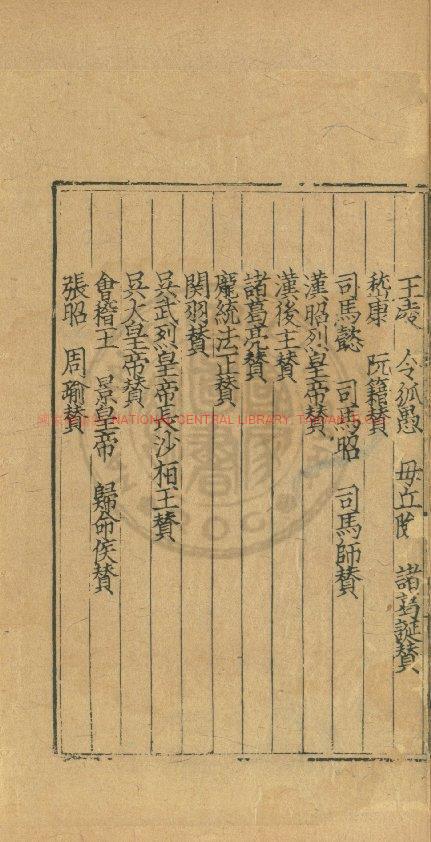 王凌　令狐愚　毋丘　諸葛誕贊
嵇康　阮籍贊
司馬懿　司馬昭　司馬師贊
漢昭烈皇帝贊
漢後主贊
諸葛亮贊
龐統法正贊
関羽贊
吳武烈皇帝長沙桓王贊
吳大皇帝贊
會稽王　景皇帝　歸命侯贊
張昭　周瑜贊
NATIONAL CENTRAL LIBRARY,